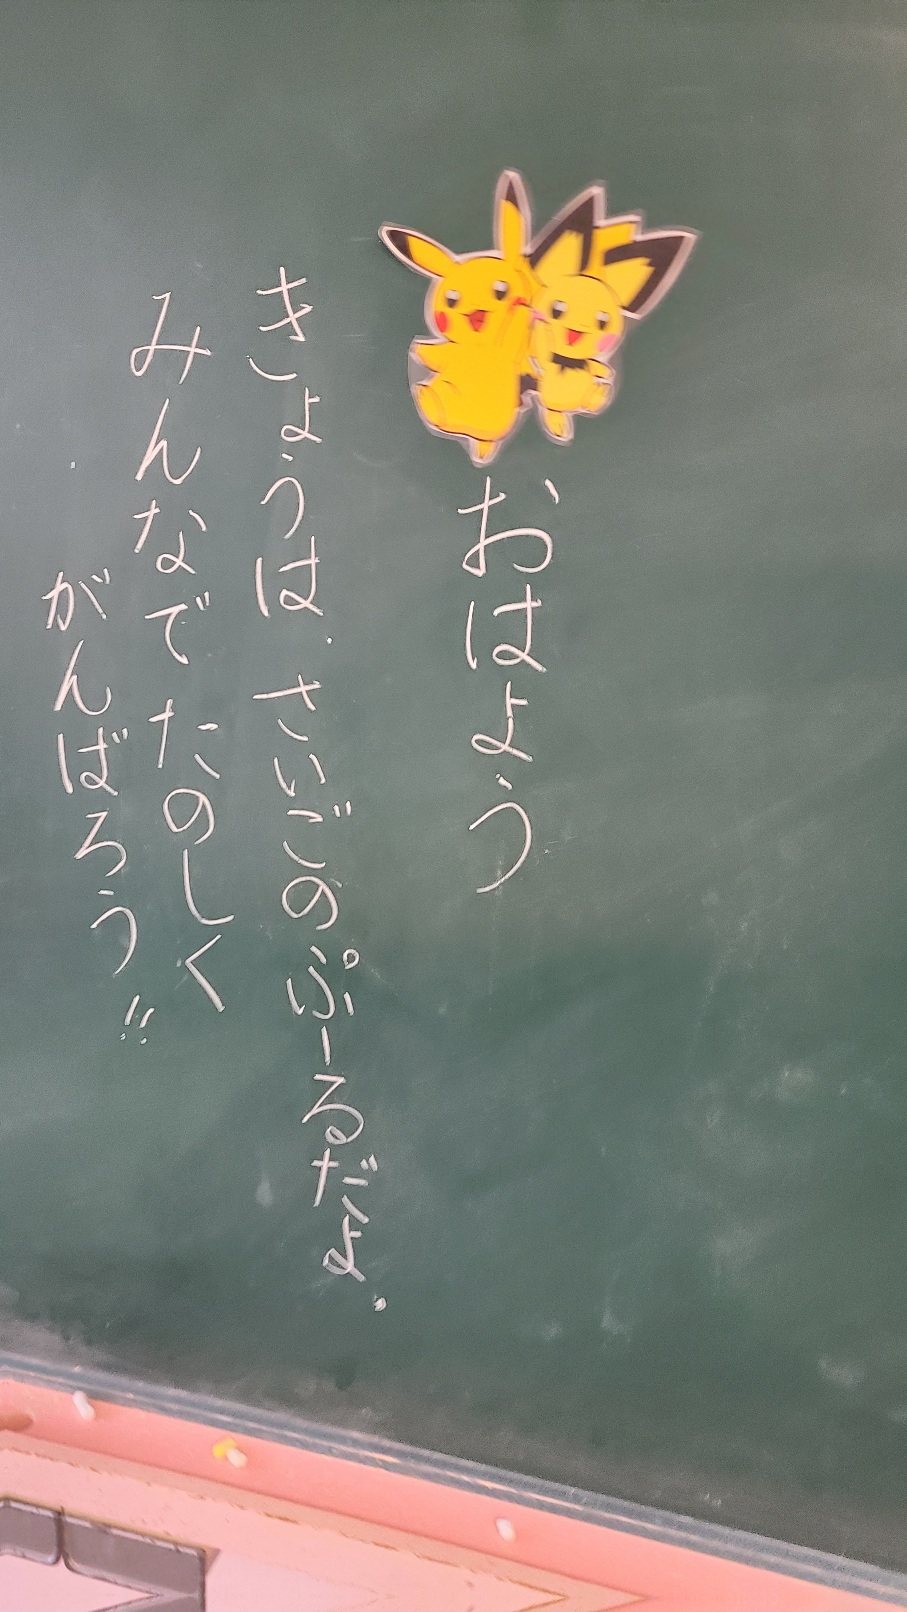 おはよう
きょうは、さいごのぷーるだよ。
みんなでたのしく
がんばろう!!